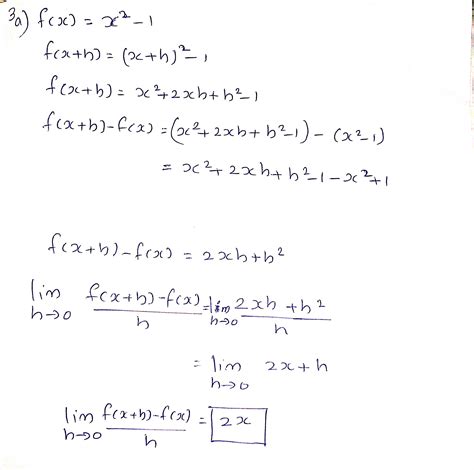 3a) f(x) = x² - 1
f(x+h) = (x+h)² - 1
f(x+h) = x² + 2xh + h² - 1
f(x+h) - f(x) = (x² + 2xh + h² - 1) - (x² - 1)
= x² + 2xh + h² - 1 - x² + 1
f(x+h) - f(x) = 2xh + h²
lim h→0 (f(x+h) - f(x))/h = lim h→0 (2xh + h²)/h
= lim h→0 2x + h
lim h→0 (f(x+h) - f(x))/h = 2x